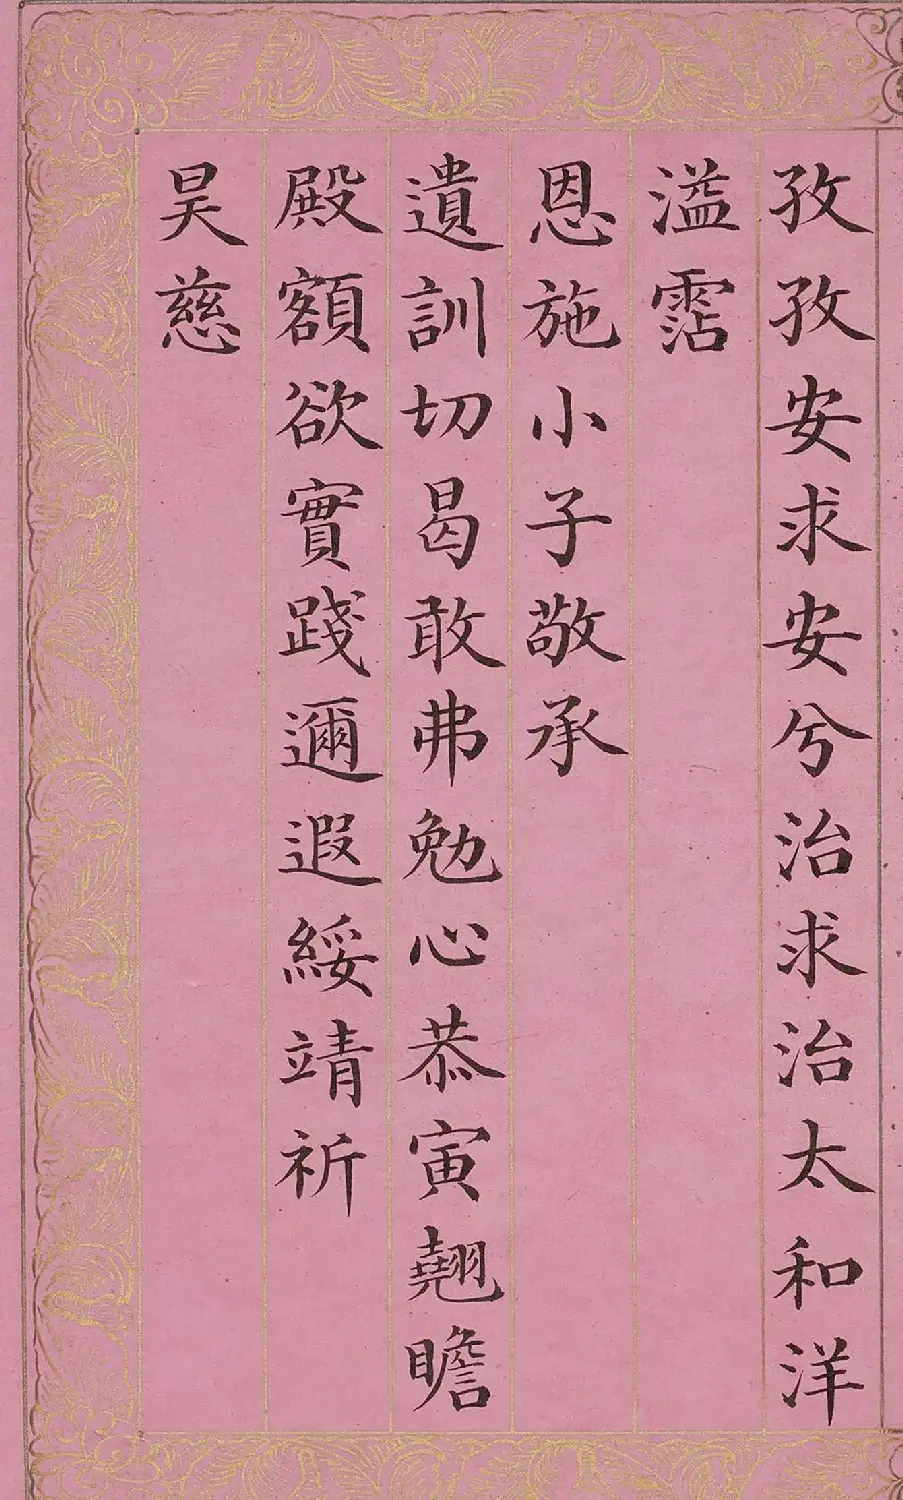 孜孜安求安兮治求治太和洋
溢霑
恩施小子敬承
遺訓切曷敢弗勉心恭寅翹瞻
殿額欲實踐邇遐綏靖祈
昊慈